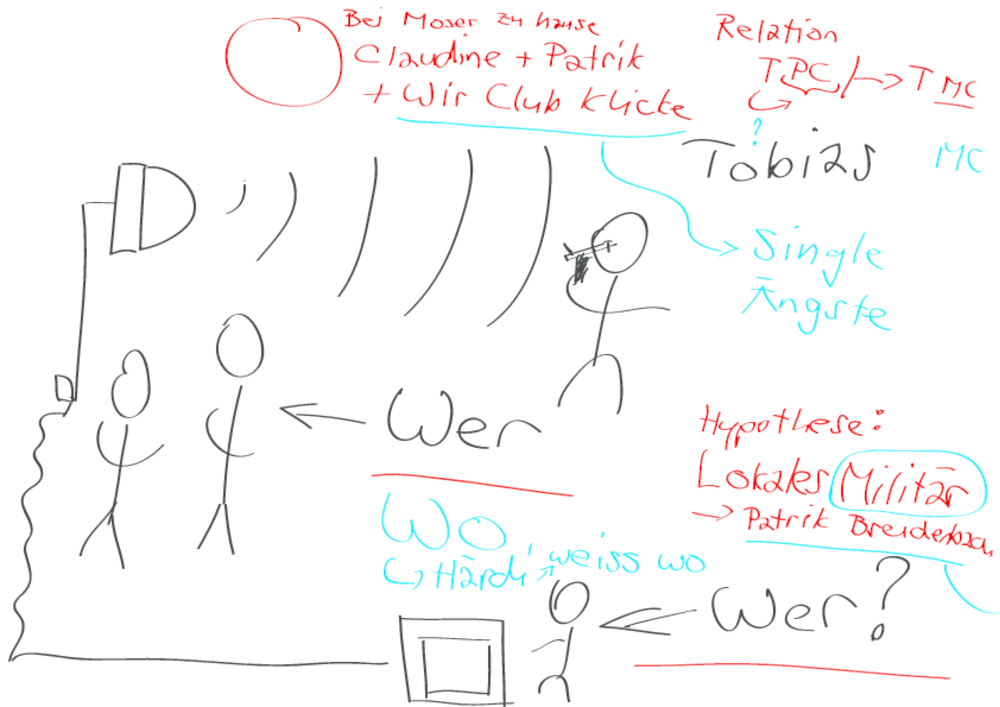 Bei Moser zu hause
Claudine + Patrik
+ Wir Club Klicke
Relation
TPC → T MC
?
Tobias MC
Single
Ängste
Wer
Hypothese:
Lokales Militär
→ Patrik Breidenbach
Wo
↳ Härdi weiss wo
Wer?